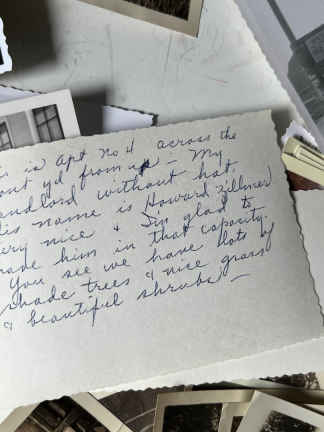 is is apt no 4 across the
ont yd from us - My
andlord without hat.
is name is Howard Zillmer
ery nice & I'm glad to
have him in that capacity.
You see we have lots of
shade trees & nice grass
& beautiful shrubs -